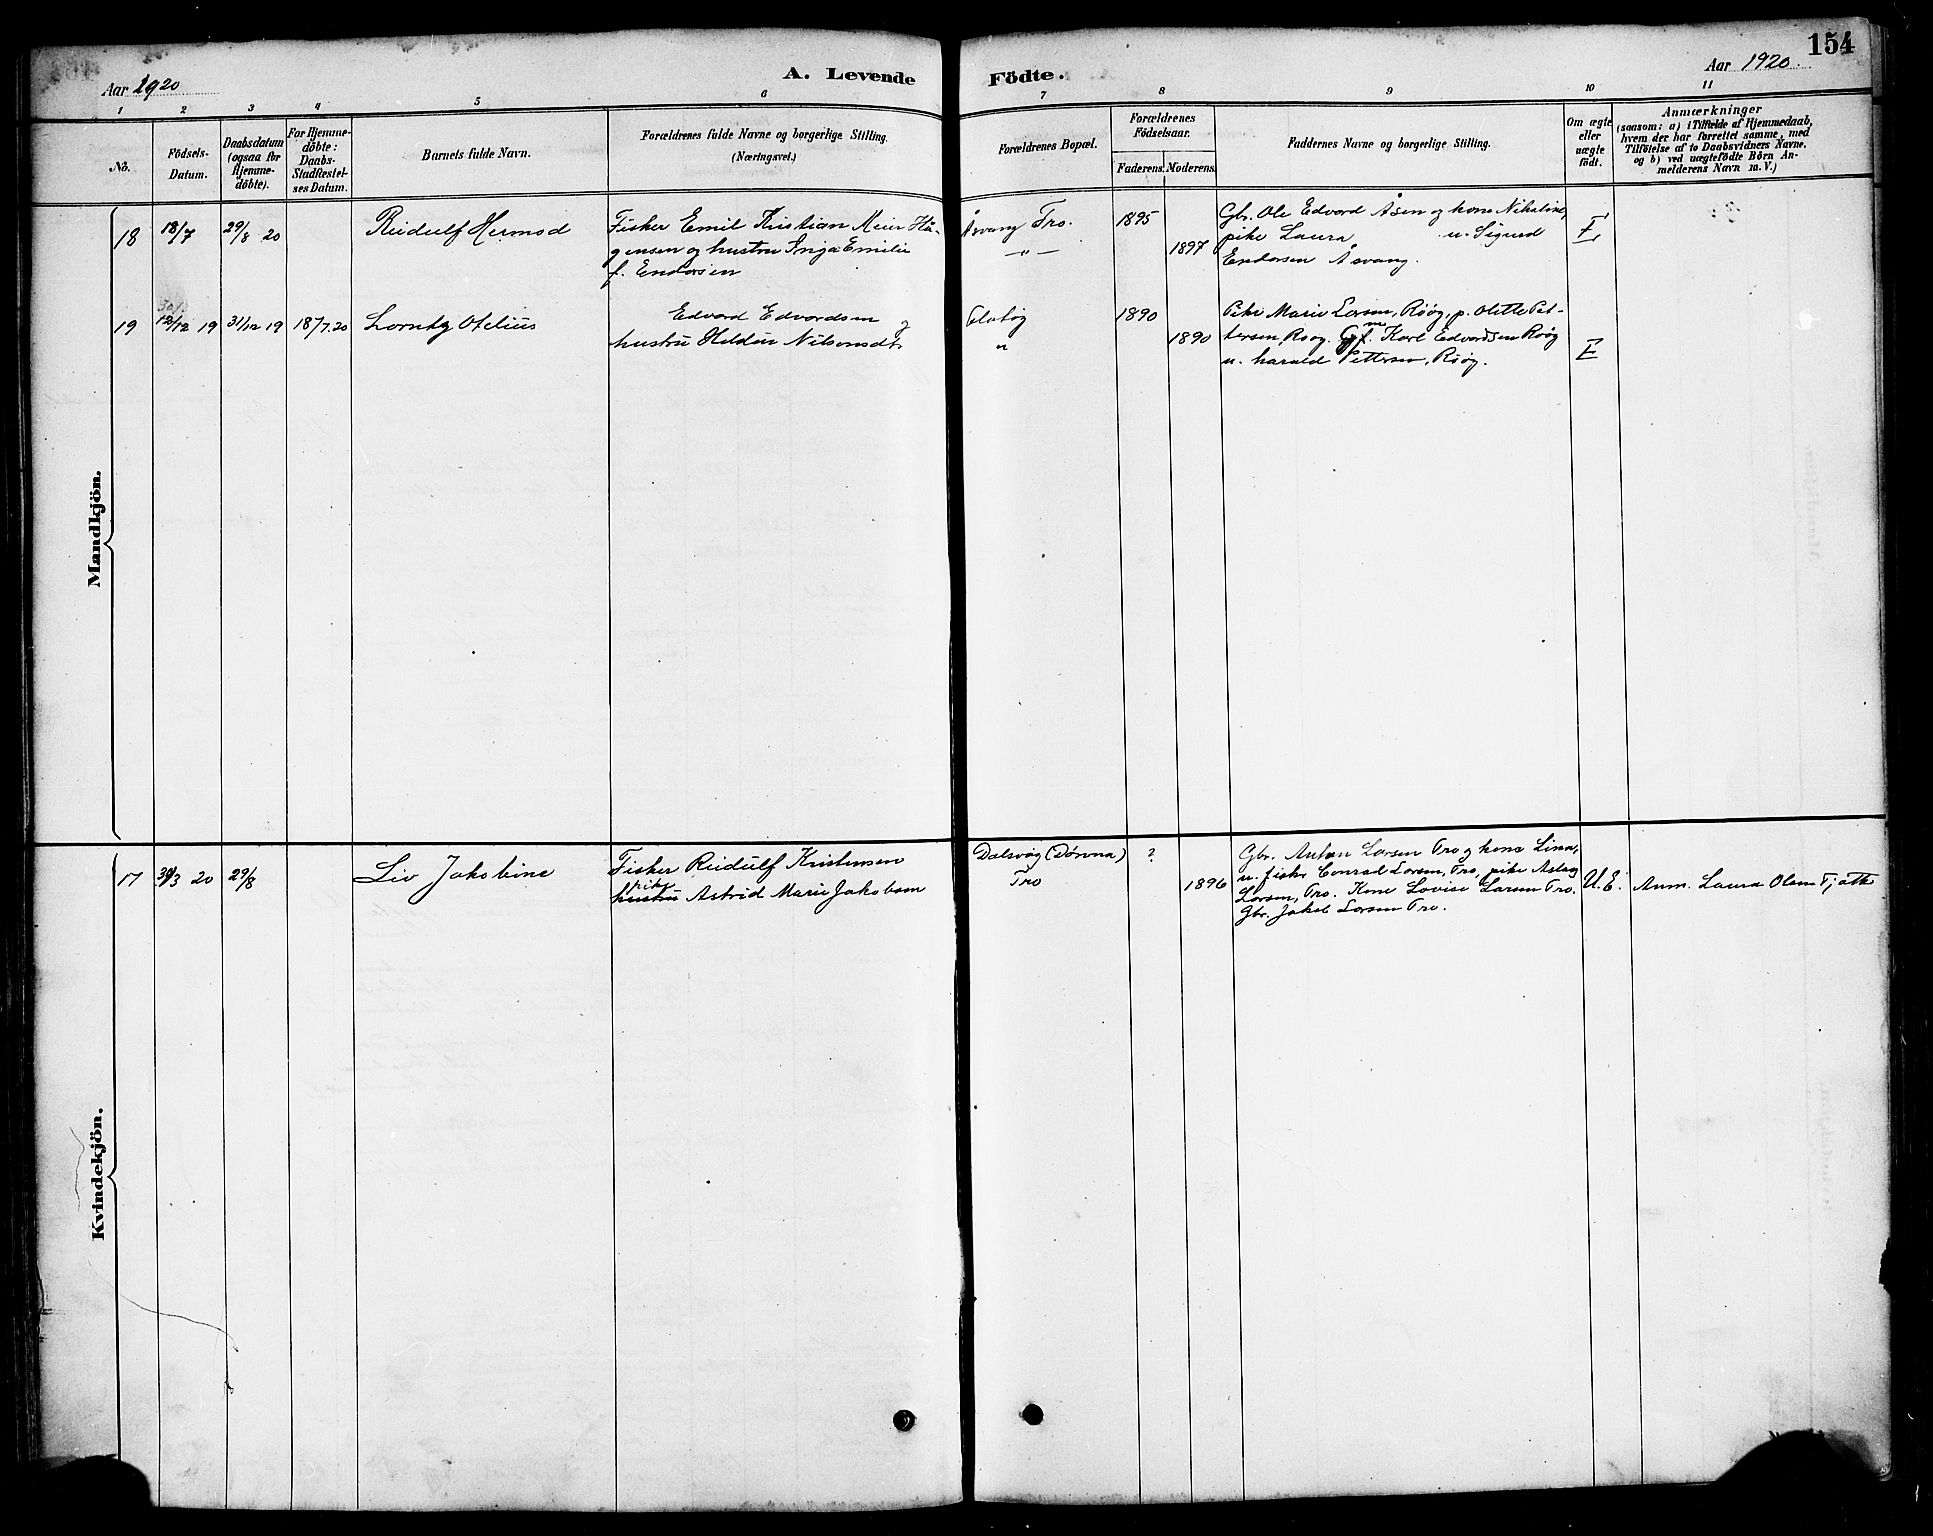 154
Aar 1920
A. Levende Födte.
Aar 1920
1 2 3 4 5 6 7 8 9 10 11
No.
Födsels-
Datum.
Daabsdatum
(ogsaa for
Hjemme-
döbte).
For Hjemme-
döbte:
Daabs-
Stadfæstel-
ses Datum.
Barnets fulde Navn.
Forældrenes fulde Navne og borgerlige Stilling.
(Næringsvei.)
Forældrenes Bopæl.
Forældrenes
Födselsaar.
Faderens. Moderens.
Faddernes Navne og borgerlige Stilling.
Om ægte
eller
uægte
födt.
Anmærkninger
(saasom: a) i Tilfælde af Hjemmedaab,
hvem der har forrettet samme, med
Tilföielse af to Daabsvidners Navne.
og b) ved uægtefödte Börn An-
melderens Navn m. V.)
Mandkjön.
18
18/7
29/8 20
Reidulf Hermod
Fisker Emil Kristian Meier Hå-
gensen og hustru Inga Emilie
f. Endorsen
Åsvang Tro.
— " —
1895
1897
Gbr. Ole Edvard Åsen og kone Nikoline,
pike Laura u. Sigurd
Endorsen Åsvang.
E
19
12/12 19
31/12 19
18/7.20
Lornty Otelius
Edvard Edvardsen og
hustru Heldur Nilsensdt.
Flatøy
"
1890
1890
Pike Marie Larsen, Røøy, p. Olette Pet-
tersen, Røøy. Karl Edvardsen Røøy
u. harald Pettersen, Røøy.
E
Kvindekjön.
17
/3 20
29/8
Liv Jakobine
Fisker Reidulf Kristensen
pike
hustru Astrid Marie Jakobsen
Dalsvåg (Dønna)
Tro
?
1896
Gbr. Anton Larsen Tro og kone Lina,
u. fisker Conrad Larsen, Tro, pike Aslaug
Larsen, Tro. Kone Lovise Larsen Tro.
Gbr. Jakob Larsen Tro.
U. E.
Anm. Laura Olsen